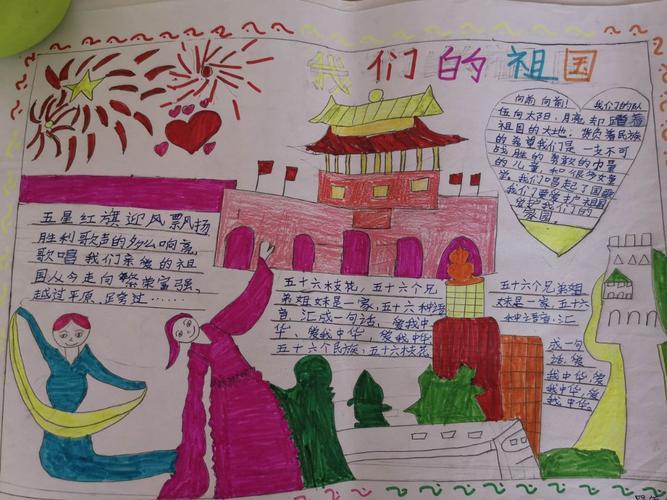 我们的祖国
向前向前！我们的队
伍向太阳，
祖国的大地，背负着民族
的希望我们是一支不可
战胜的
我们要爱护祖国
爱护我们的
家园
五星红旗迎风飘扬
胜利歌声多么响亮
歌唱我们亲爱的祖
国从今走向繁荣富强
越过平原，……
五十六枝花，五十六个兄
弟姐妹是一家，五十六种语
言，汇成一句话，爱我中
华，爱我中华，爱我中华
五十六个民族，五十六枝花
五十六个兄弟姐
妹是一家，五十六
种语言，汇
成一句
话，爱
我中华，爱
我中华，爱
我中华。